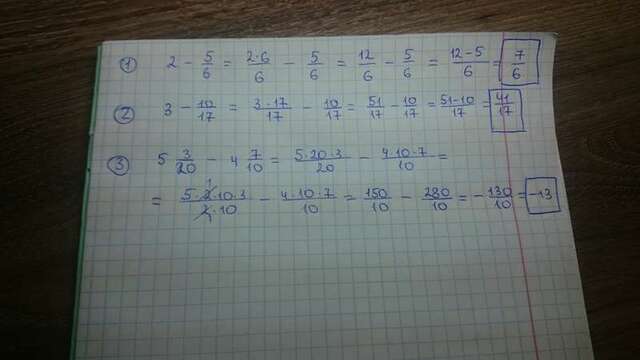 ① 2 - 5/6 = 2·6/6 - 5/6 = 12/6 - 5/6 = 12-5/6 = 7/6
② 3 - 10/17 = 3·17/17 - 10/17 = 51/17 - 10/17 = 51-10/17 = 41/17
③ 5 3/20 - 4 7/10 = 5·20·3/20 - 4·10·7/10 =
= 5·2·10·3/2·10 - 4·10·7/10 = 150/10 - 280/10 = -130/10 = -13